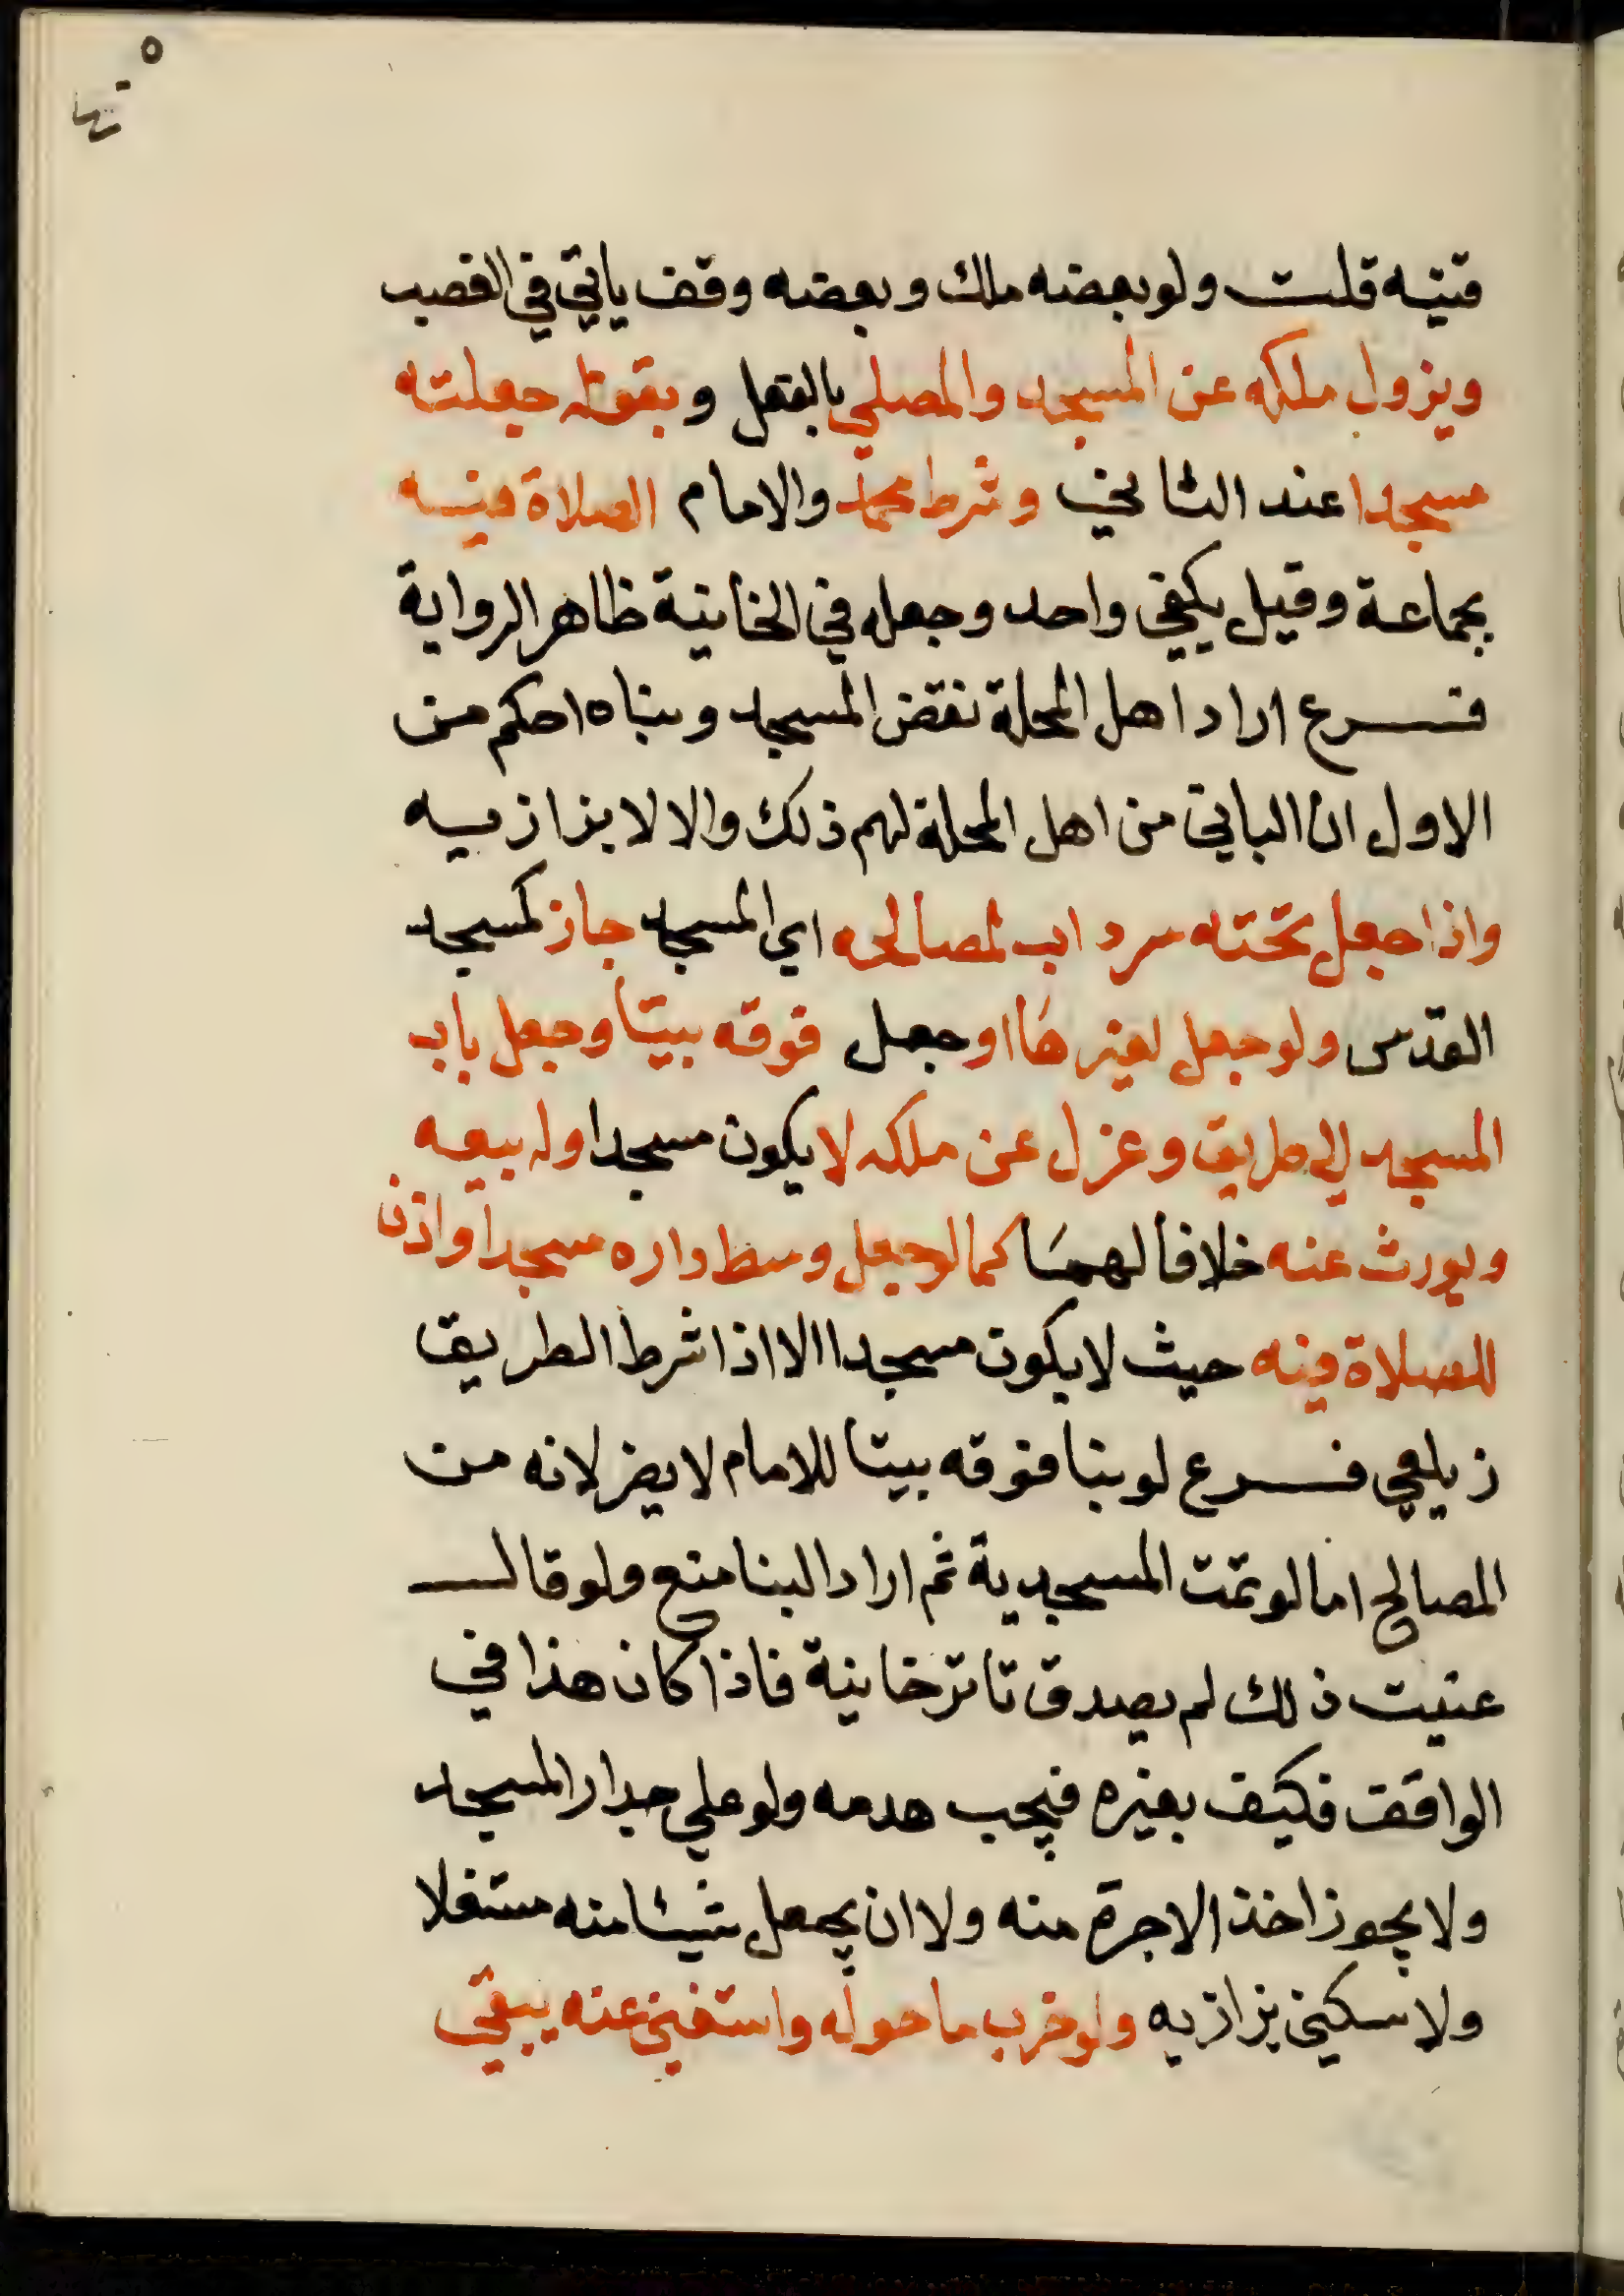 ٥
قنيه قلت ولو بعضه ملك وبعضه وقف ياتي في الغصب
ويزول ملكه عن المسجد والمصلي بالفعل وبقوله جعلته
مسجدا عند الثاني وشرط محمد والامام الصلاة فيه
بجماعة وقيل يكفي واحد وجعله في الخانية ظاهر الرواية
فرع اراد اهل المحلة نقض المسجد وبناه احكم من
الاول ان الباني من اهل المحلة لهم ذلك والا لا بزازيه
واذا جعل تحته سرداب لمصالحه اي المسجد جاز كمسجد
القدس ولو جعل لغيرها او جعل فوقه بيتا وجعل باب
المسجد الي طريق وعزل عن ملكه لا يكون مسجدا وله بيعه
ويورث عنه خلافا لهما كما لو جعل وسط داره مسجدا واذن
للصلاة فيه حيث لا يكون مسجدا الا اذا شرط الطريق
زيلعي فرع لو بنا فوقه بيتا للامام لا يضر لانه من
المصالح اما لو تمت المسجدية ثم اراد البنا منع ولو قال
عنيت ذلك لم يصدق تاترخانية فاذا كان هذا في
الواقف فكيف بغيره فيجب هدمه ولو علي جدار المسجد
ولا يجوز اخذ الاجرة منه ولا ان يجعل شيئا منه مستغلا
ولا سكني بزازيه ولو خرب ما حوله واستغني عنه يبقي